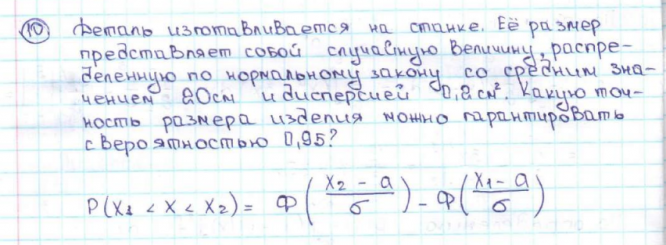 10 Деталь изготавливается на станке. Её размер
представляет собой случайную величину, распре-
деленную по нормальному закону со средним зна-
чением 20см и дисперсией 0,2см². Какую точ-
ность размера изделия можно гарантировать
с вероятностью 0,95?
P(x₁ < x < x₂) = Ф((x₂ - a)/σ) - Ф((x₁ - a)/σ)